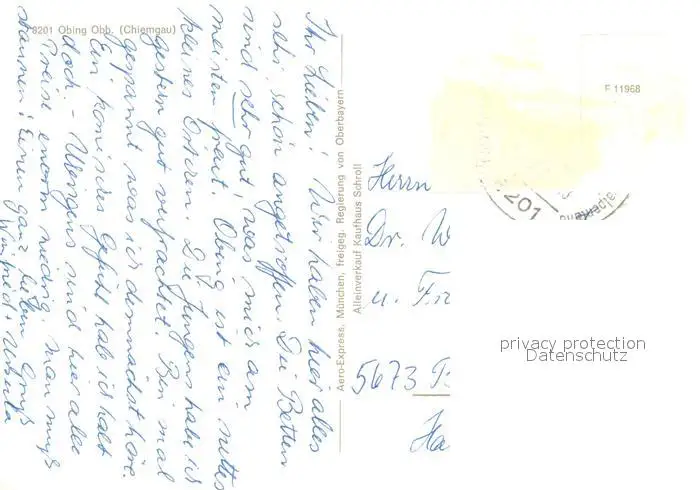 8201 Obing Obb. (Chiemgau)
Ihr Lieben! Wir haben hier alles
sehr schön angetroffen. Die Betten
sind sehr gut, was mich am
meisten freut. Obing ist ein nettes
kleines Örtchen. Die Jungens habe ich
gestern gut verfrachtet. Bin mal
gespannt was ich demnächst höre.
Ein komisches Gefühl hab ich halt
doch. - Übrigens sind hier alle
Preise enorm niedrig, man muß
staunen! Einen ganz lieben Gruß
Winfried + Ursula
Aero-Express, München, freigeg. Regierung von Oberbayern
Alleinverkauf Kaufhaus Schroll
F 11968
201
Herrn
Dr. W
u. Fr
5673
Ha
privacy protection
Datenschutz